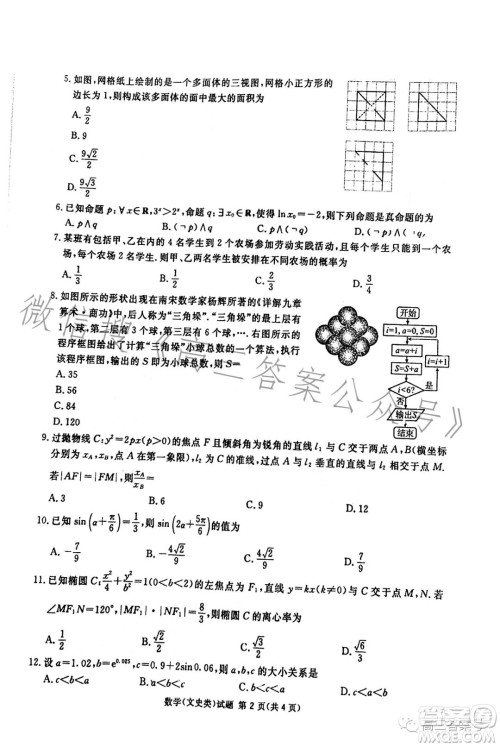 5.如图,网格纸上绘制的是一个多面体的三视图,网格小正方形的
边长为1,则构成该多面体的面中最大的面积为
A. 9/2
B. 9
C. 9√2/2
D. 9√3/2
6.已知命题p:∀x∈R,3ˣ>2ˣ,命题q:∃x₀∈R,使得lnx₀=-2,则下列命题为真命题的为
A.p∧q B.(¬p)∧q C.p∧(¬q) D.(¬p)∧(¬q)
7.某班有包括甲、乙在内的4名学生到2个农场参加劳动实践活动,且每个学生只能到一个农
场,每个农场2名学生.则甲、乙两名学生被安排在不同农场的概率为
A. 1/3 B. 1/2 C. 2/3 D. 3/4
8.如图所示的形状出现在南宋数学家杨辉所著的《详解九章
算术·商功》中,后人称为“三角垛”.“三角垛”的最上层有
1个球,第二层有3个球,第三层有6个球,….如图所示的
程序框图给出了计算“三角垛”小球总数的一个算法,执行
该程序框图,输出的S即为小球总数,则S=
A.35
B.56
C.84
D.120
开始
i=1, a=0, S=0
a=a+i
S=S+a
i=i+1
i<6?
输出S
结束
9.过抛物线C:y²=2px(p>0)的焦点F且倾斜角为锐角的直线l₁与C交于两点A,B(横坐标
分别为xA,xB,点A在第一象限),l₂为C的准线,过点A与l₁垂直的直线与l₂相交于点M.
若|AF|=|FM|,则xA/xB=
A.3 B.6 C.9 D.12
10.已知sin(α+π/6)=1/3,则sin(2α+5π/6)的值为
A.-7/9 B.-4√2/9 C.4√2/9 D.7/9
11.已知椭圆C:x²/4+y²/b²=1(0<b<2)的左焦点为F₁,直线y=kx(k≠0)与C交于点M,N.若
∠MF₁N=120°,|MF₁|·|NF₁|=8/3,则椭圆C的离心率为
A. 1/2 B. √2/2 C. √3/3 D. √6/3
12.设a=1.02,b=e^0.025,c=0.9+2sin0.06,则a,b,c的大小关系是
A.c<b<a B.a<b<c C.b<a<c D.c<a<b
数学(文史类)试题 第2页(共4页)
微信搜《高三答案公众号》